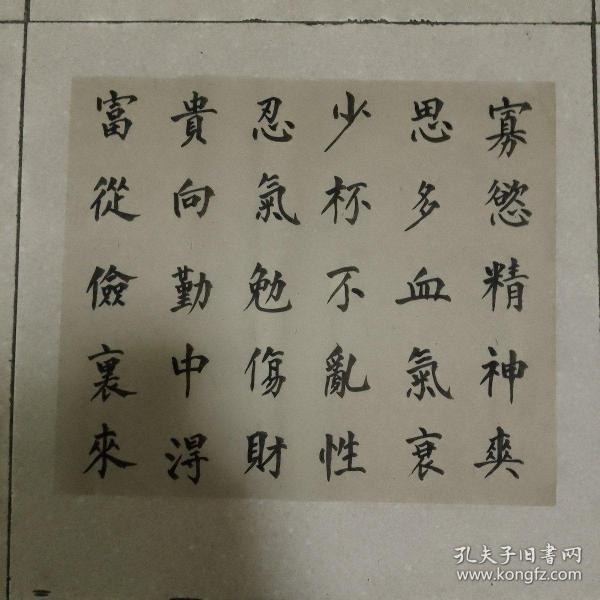 寡慾精神爽
思多血氣衰
少杯不亂性
忍氣勉傷財
貴向勤中淂
富從儉裏來
孔夫子旧书网
www.kongfz.com